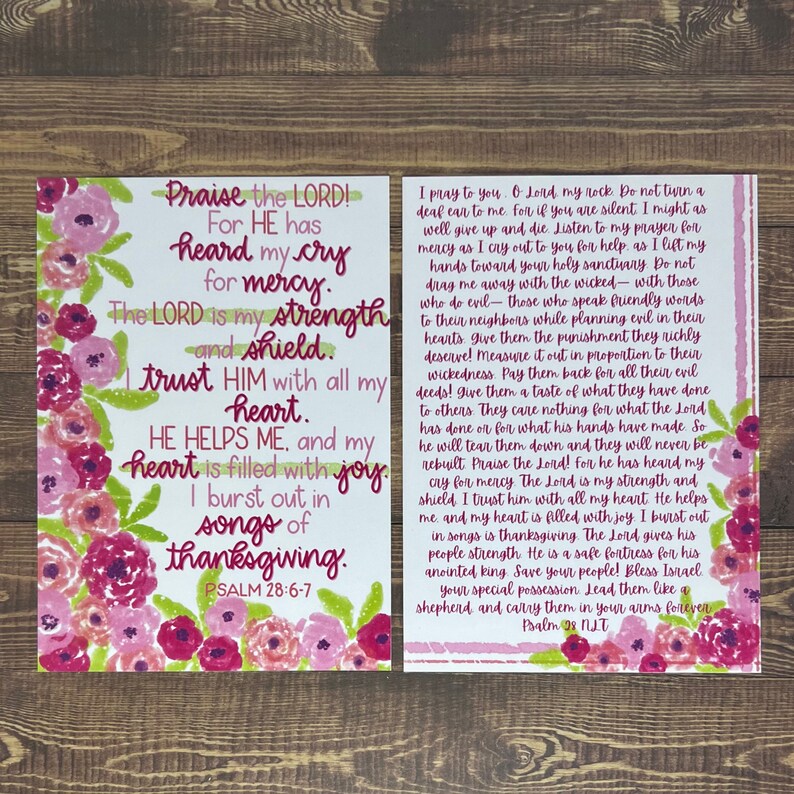 Praise the LORD!
For HE has
heard my cry
for mercy.
The LORD is my strength
and shield.
I trust HIM with all my
heart.
HE HELPS ME, and my
heart is filled with joy.
I burst out in
songs of
thanksgiving.
PSALM 28:6-7
I pray to you , O Lord, my rock. Do not turn a
deaf ear to me. For if you are silent, I might as
well give up and die. Listen to my prayer for
mercy as I cry out to you for help, as I lift my
hands toward your holy sanctuary. Do not
drag me away with the wicked— with those
who do evil— those who speak friendly words
to their neighbors while planning evil in their
hearts. Give them the punishment they richly
deserve! Measure it out in proportion to their
wickedness. Pay them back for all their evil
deeds! Give them a taste of what they have done
to others. They care nothing for what the Lord
has done or for what his hands have made. So
he will tear them down and they will never be
rebuilt. Praise the Lord! For he has heard my
cry for mercy. The Lord is my strength and
shield. I trust him with all my heart. He helps
me, and my heart is filled with joy. I burst out
in songs is thanksgiving. The Lord gives his
people strength. He is a safe fortress for his
anointed king. Save your people! Bless Israel,
your special possession. Lead them like a
shepherd, and carry them in your arms forever.
Psalm 28 NLT